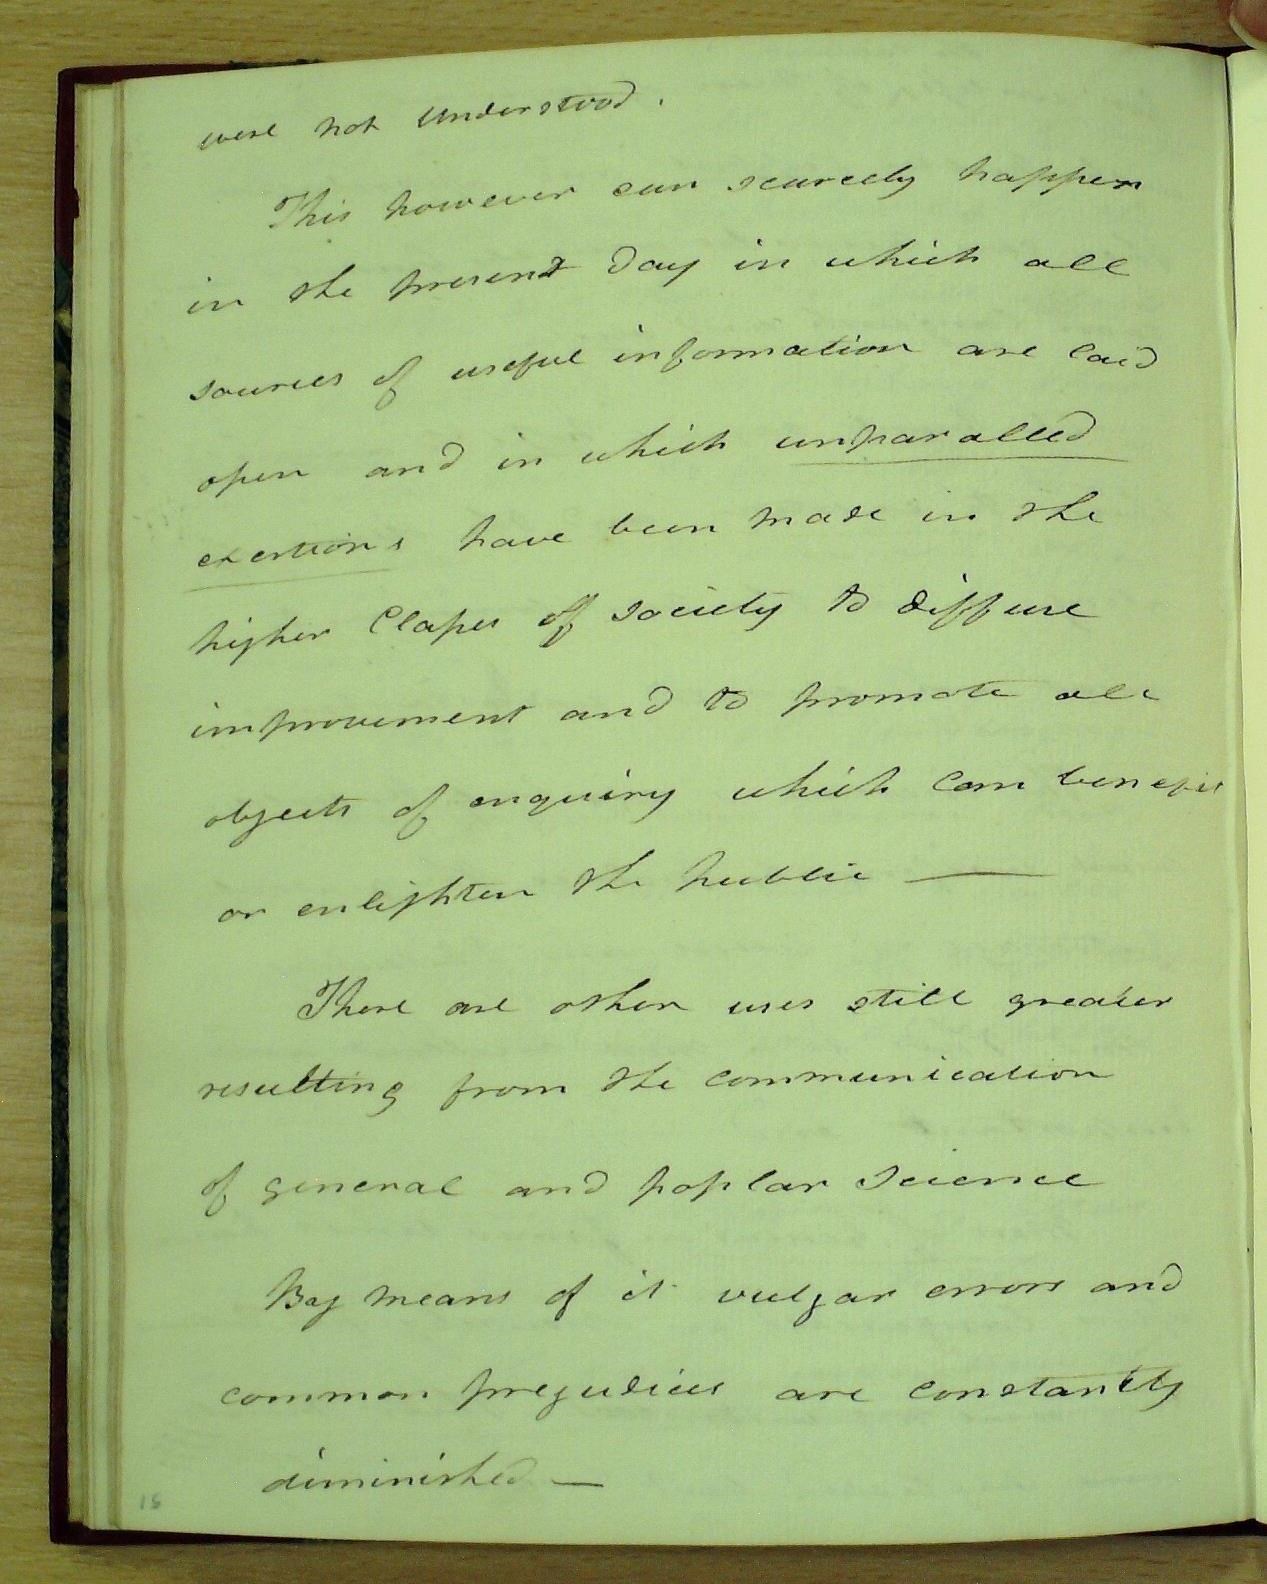 were not understood.
This however can scarcely happen
in the present day in which all
sources of useful information are laid
open and in which unparalled
exertions have been made in the
higher Classes of society to diffuse
improvement and to promote all
objects of enquiry which can benefit
or enlighten the public —
There are other uses still greater
resulting from the communication
of general and poplar science
By means of it vulgar errors and
common prejudices are constantly
diminished —
15